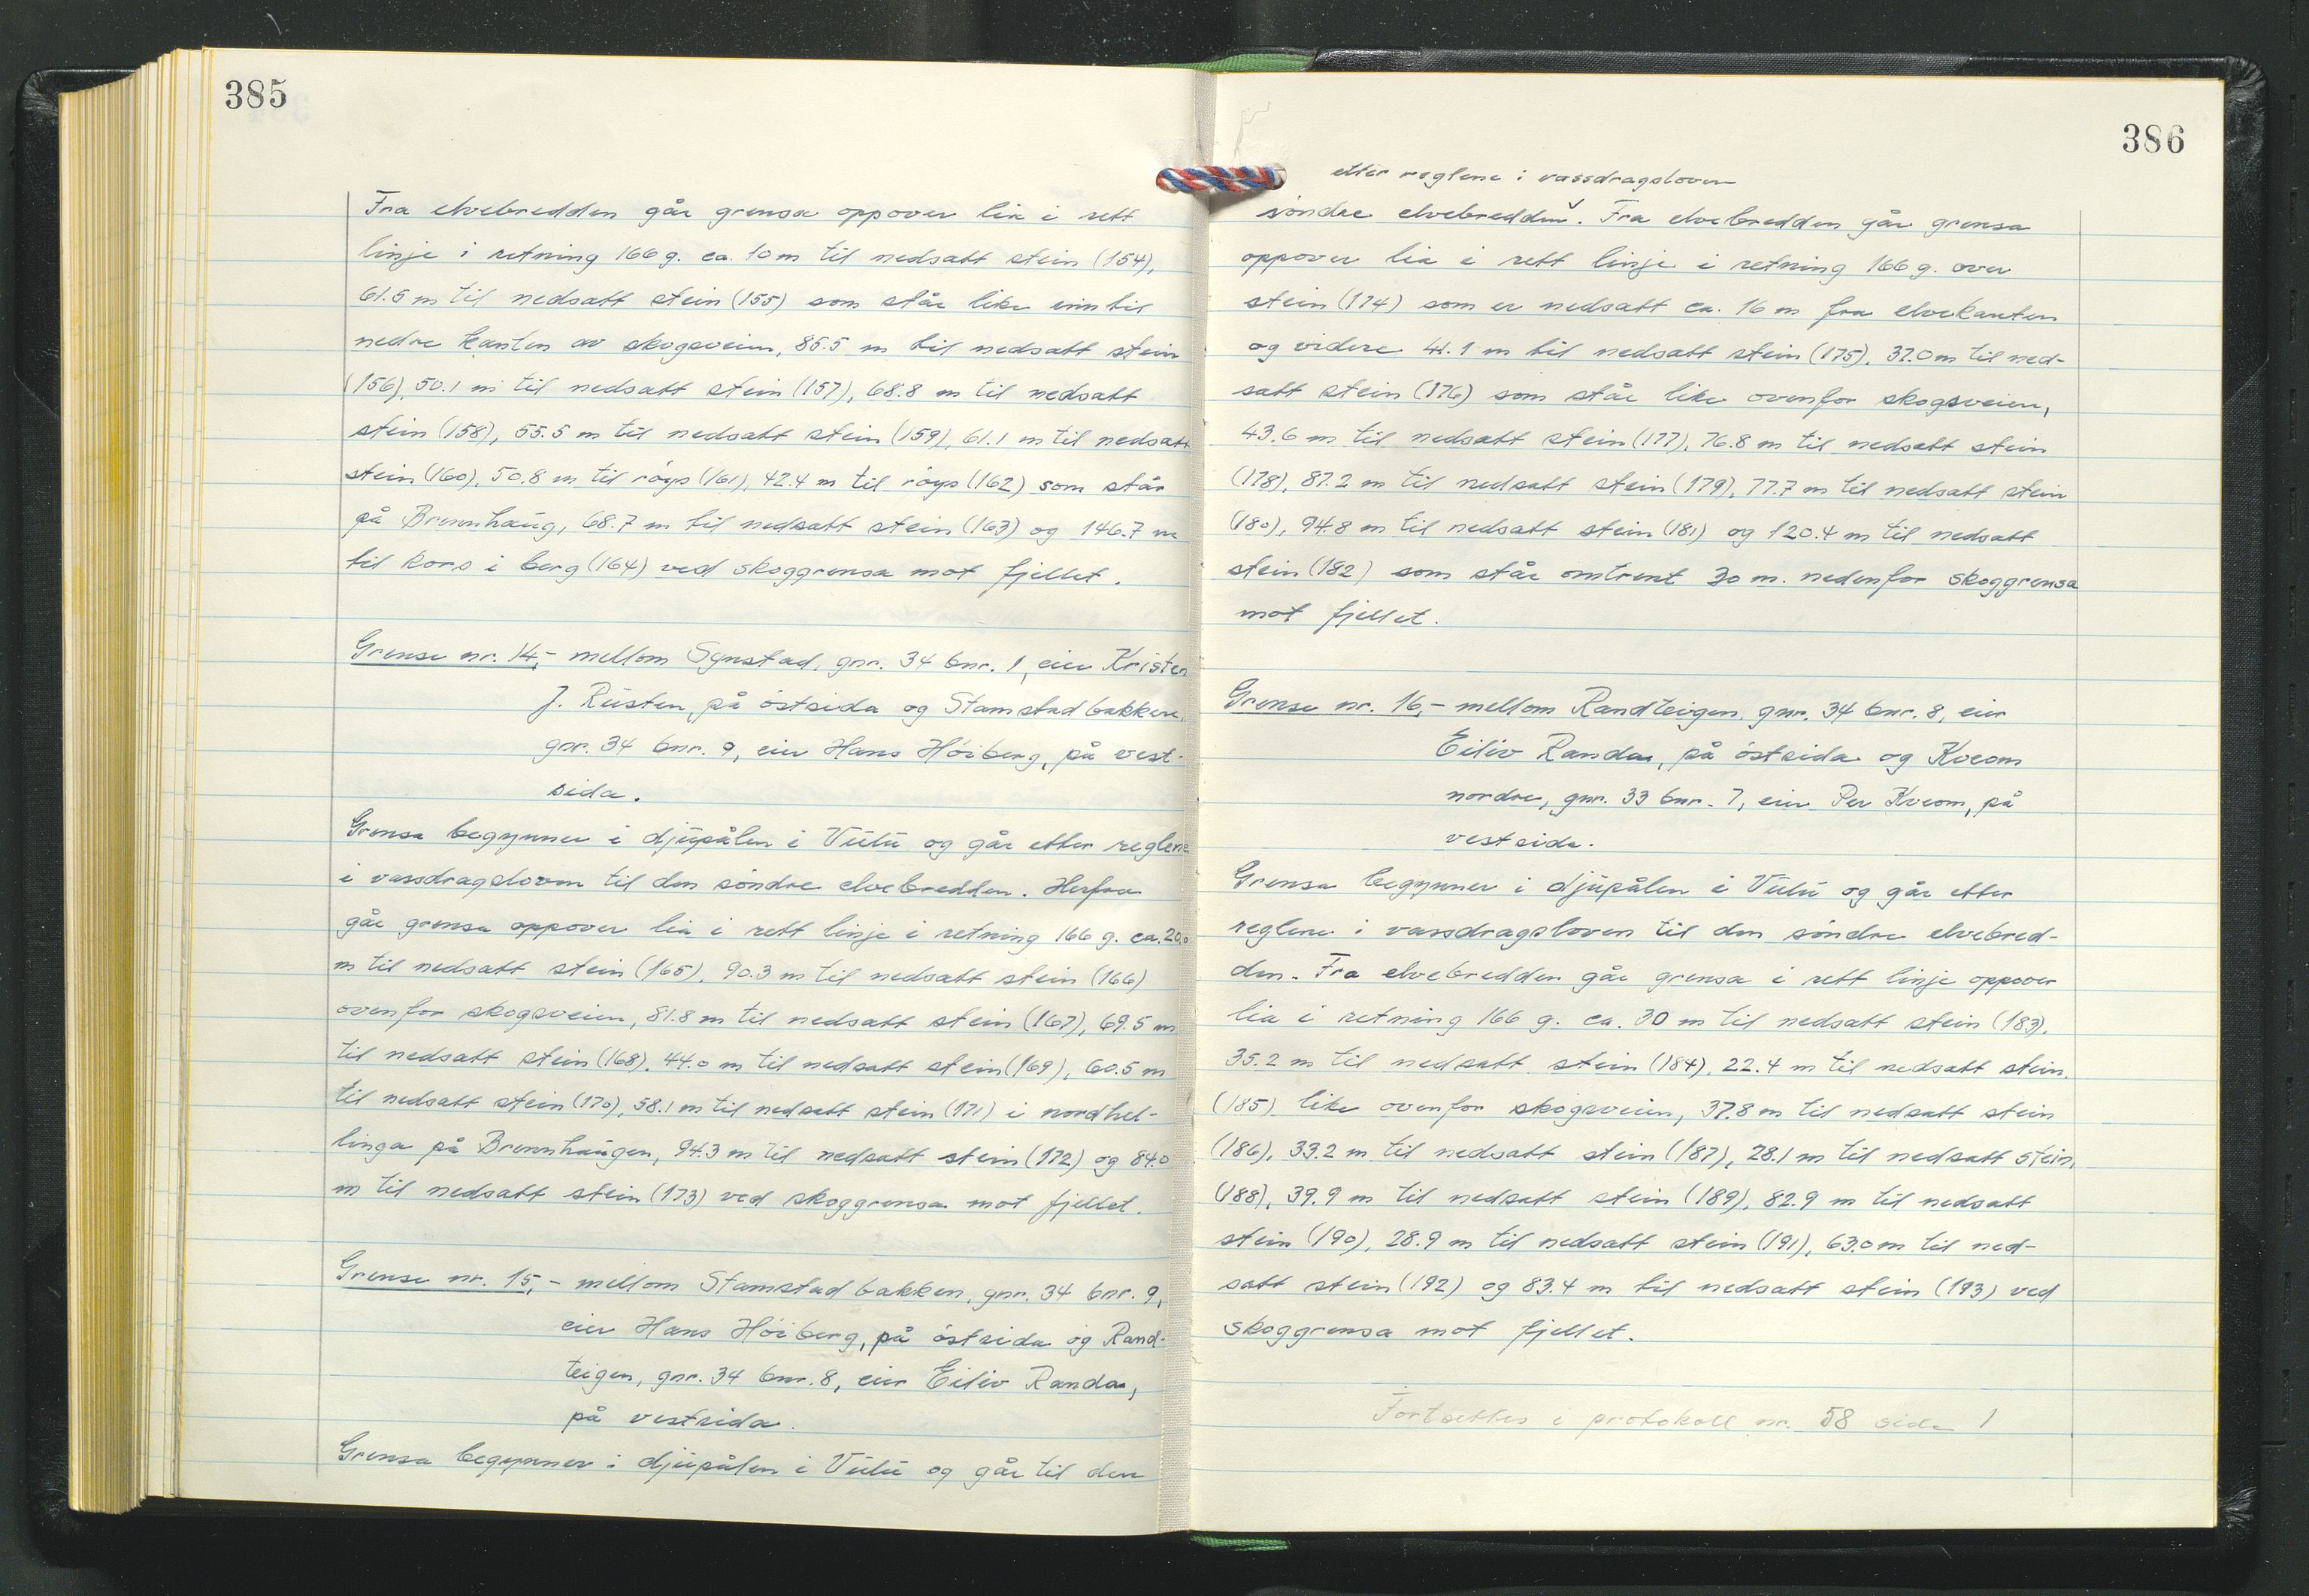 385
Fra elvebredden går grensa oppover lia i rett
linje i retning 166 g. ca. 10 m til nedsatt stein (154),
61.5 m til nedsatt stein (155) som står like inn til
nedre kanten av skogsveien, 85.5 m til nedsatt stein
(156), 50.1 m til nedsatt stein (157), 68.8 m til nedsatt
stein (158), 55.5 m til nedsatt stein (159), 61.1 m til nedsatt
stein (160), 50.8 m til röys (161), 42.4 m til röys (162) som står
på Brennhaug, 68.7 m til nedsatt stein (163) og 146.7 m
til kors i berg (164) ved skoggrensa mot fjellet.
Grense nr. 14,- mellom Synstad, gnr. 34 bnr. 1, eier Kristen
J. Rusten, på östsida og Stamstadbakken,
gnr. 34 bnr. 9, eier Hans Höiberg, på vest-
sida.
Grensa begynner i djupålen i Vulu og går etter reglene
i vassdragsloven til den söndre elvebredden. Herfra
går grensa oppover lia i rett linje i retning 166 g. ca. 20.0
m til nedsatt stein (165), 90.3 m til nedsatt stein (166)
ovenfor skogsveien, 81.8 m til nedsatt stein (167), 69.5 m
til nedsatt stein (168), 44.0 m til nedsatt stein (169), 60.5 m
til nedsatt stein (170), 58.1 m til nedsatt stein (171) i nordhel-
linga på Brennhaugen, 94.3 m til nedsatt stein (172) og 84.0
m til nedsatt stein (173) ved skoggrensa mot fjellet.
Grense nr. 15,- mellom Stamstadbakken, gnr. 34 bnr. 9,
eier Hans Höiberg, på östsida og Rand-
teigen, gnr. 34 bnr. 8, eier Eiliv Randen,
på vestsida.
Grensa begynner i djupålen i Vulu og går til den
386
etter reglene i vassdragsloven
söndre elvebredden. Fra elvebredden går grensa
oppover lia i rett linje i retning 166 g. over
stein (174) som er nedsatt ca. 16 m fra elvekanten
og videre 41.1 m til nedsatt stein (175), 37.0 m til ned-
satt stein (176) som står like ovenfor skogsveien,
43.6 m til nedsatt stein (177), 76.8 m til nedsatt stein
(178), 87.2 m til nedsatt stein (179), 77.7 m til nedsatt stein
(180), 94.8 m til nedsatt stein (181) og 120.4 m til nedsatt
stein (182) som står omtrent 30 m. nedenfor skoggrensa
mot fjellet.
Grense nr. 16,- mellom Randteigen, gnr. 34 bnr. 8, eier
Eiliv Randen, på östsida og Kveom
nordre, gnr. 33 bnr. 7, eier Per Kveom, på
vestsida.
Grensa begynner i djupålen i Vulu og går etter
reglene i vassdragsloven til den söndre elvebred-
den. Fra elvebredden går grensa i rett linje oppover
lia i retning 166 g. ca. 30 m til nedsatt stein (183),
35.2 m til nedsatt stein (184), 22.4 m til nedsatt stein
(185) like ovenfor skogsveien, 37.8 m til nedsatt stein
(186), 33.2 m til nedsatt stein (187), 28.1 m til nedsatt stein
(188), 39.9 m til nedsatt stein (189), 82.9 m til nedsatt
stein (190), 28.9 m til nedsatt stein (191), 63.0 m til ned-
satt stein (192) og 83.4 m til nedsatt stein (193) ved
skoggrensa mot fjellet.
Fortsettes i protokoll nr. 58 side 1